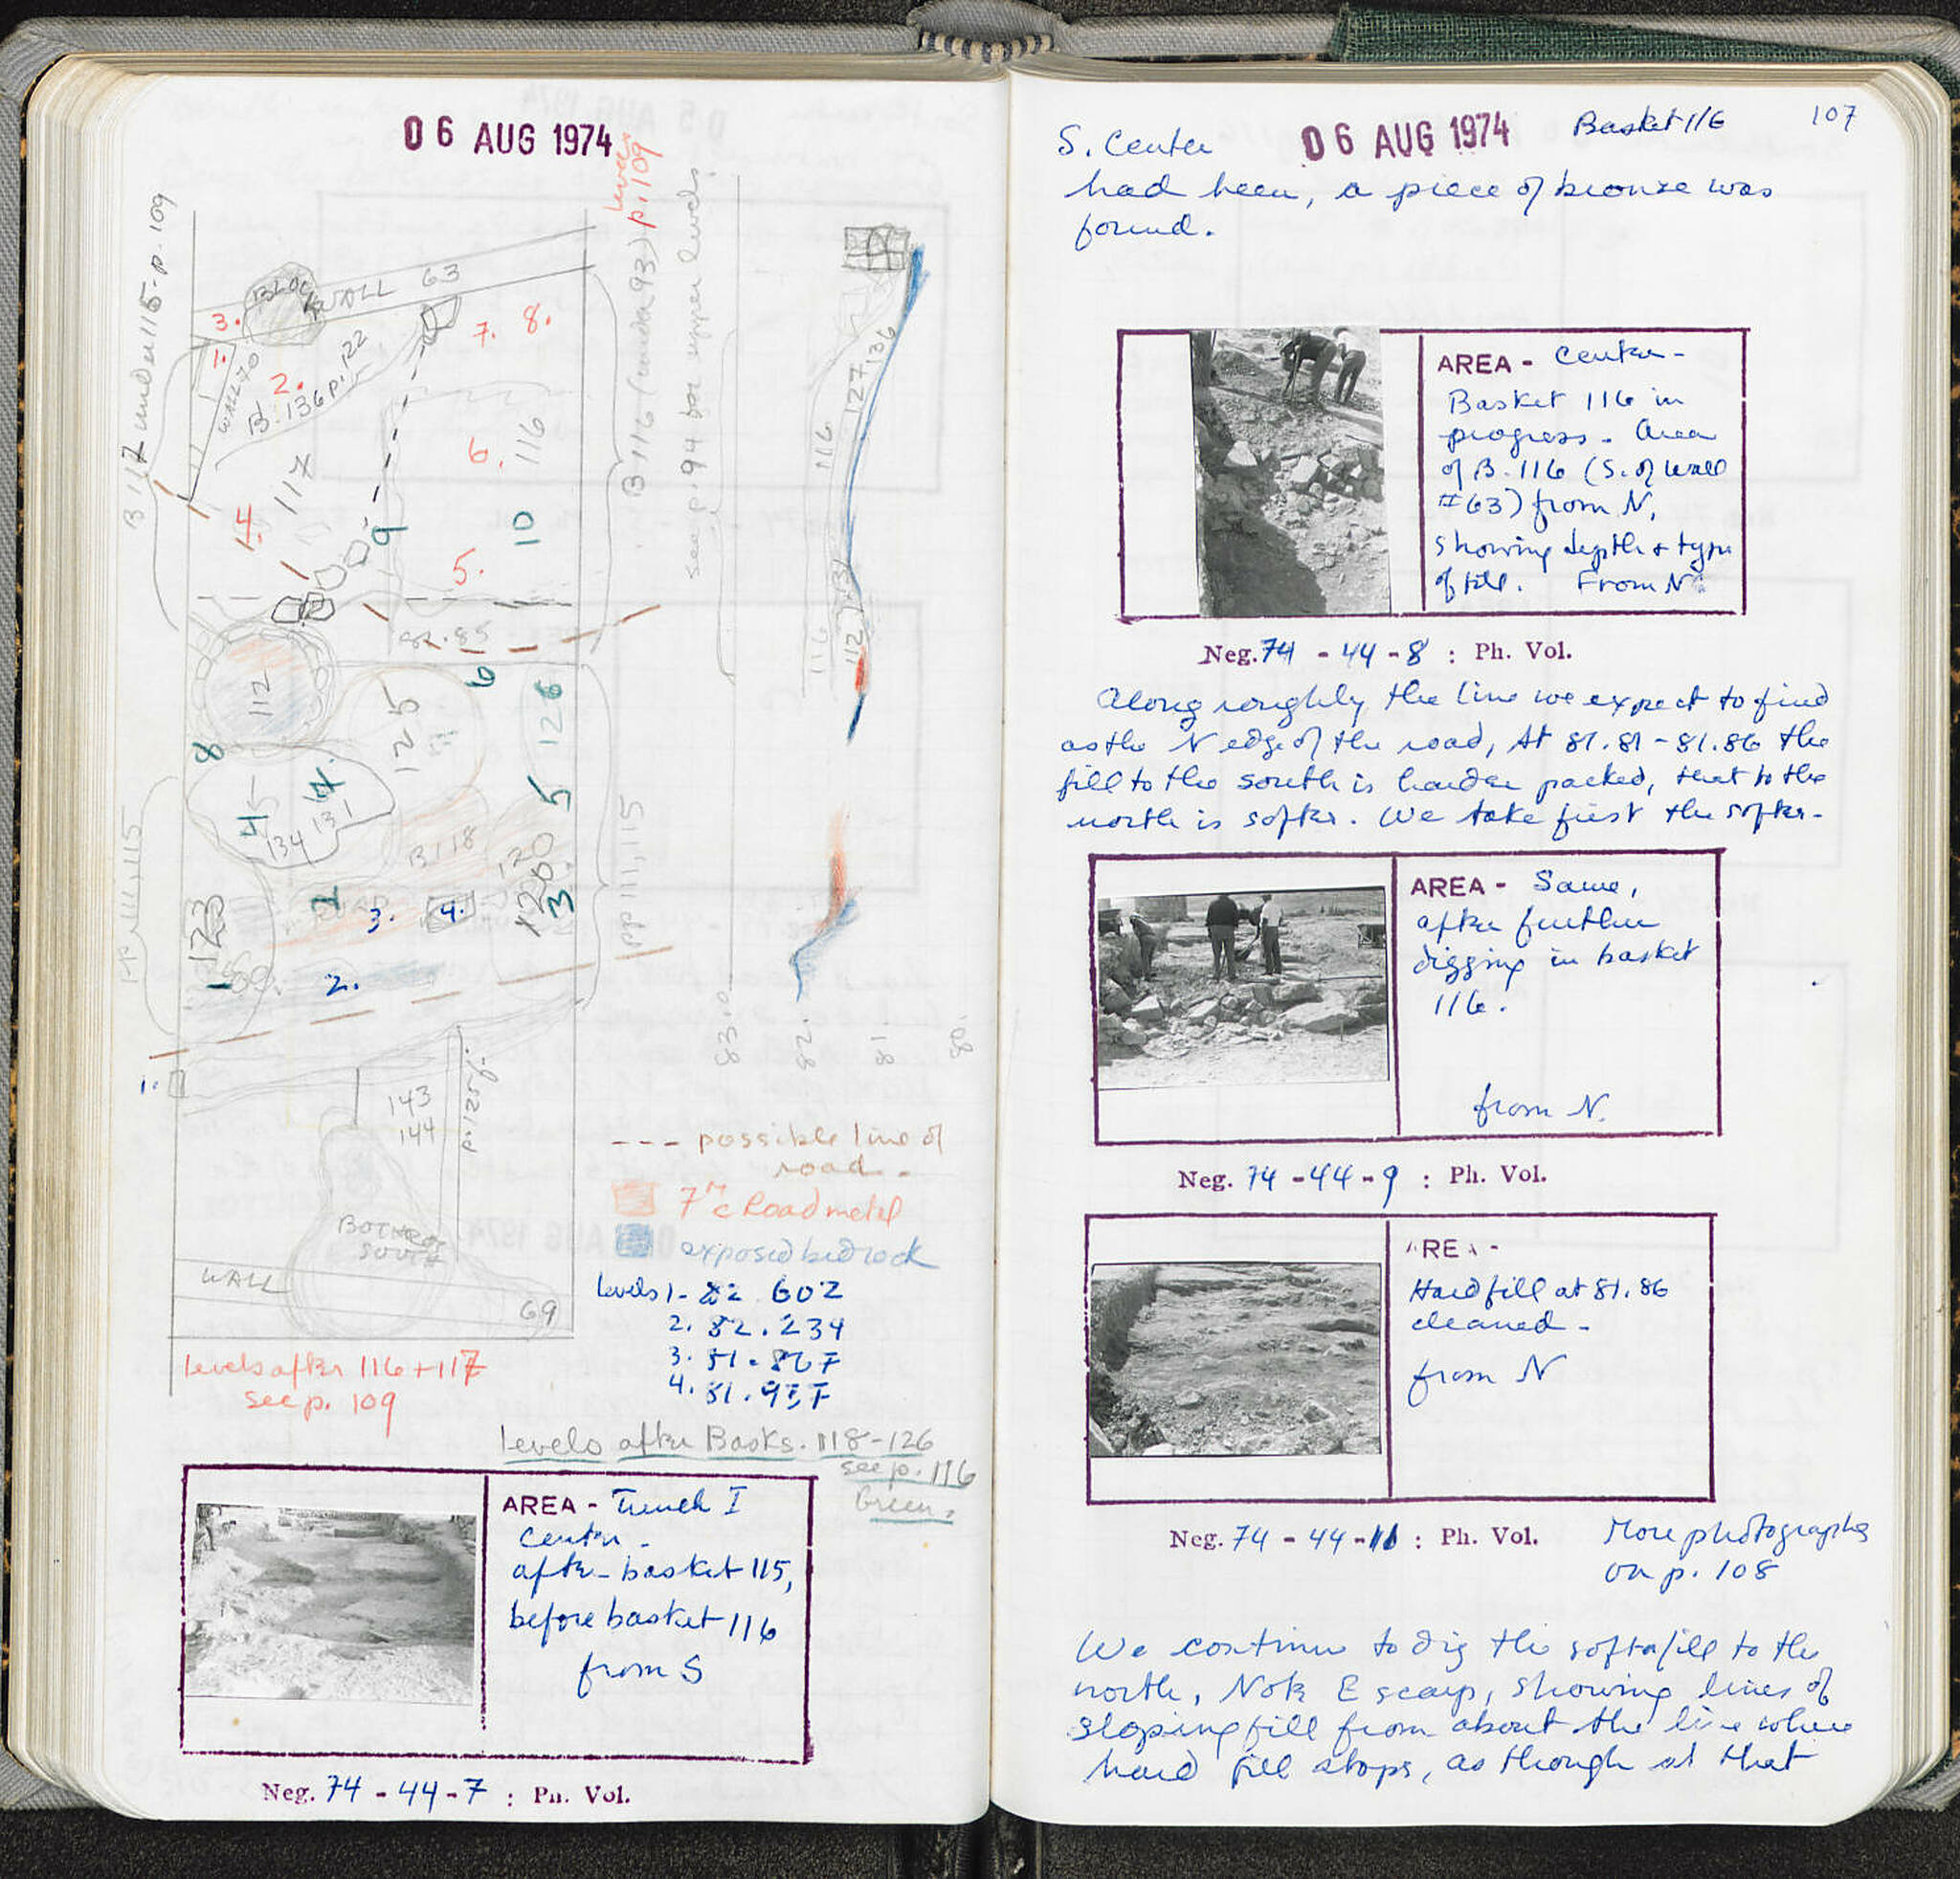 06 AUG 1974
levels
p. 109
B 117 under 115 - p. 109
B 116 (under 93)
see p. 94 for upper levels
WALL 63
3.
1.
2.
WALL 70
B. 136 p. 122
7. 8.
6. 116
117
4.
5.
9
10
112
125
6
126
8
5
4
134
131
B 118
120
3
2
ROAD
3. 4.
123
2.
pp 111, 115
pp 111, 115
1.
143
144
p. 125 f.
BOTHROS
SOUTH
WALL
69
136
127
116
131
112
116
83.0
82.
81
80.
--- possible line of
road.
7th c Road metal
exposed bedrock
levels 1- 82.602
2. 82.234
3. 81.867
4. 81.957
levels after 116 + 117
see p. 109
levels after Basks. 118-126
see p. 116
Green.
AREA - Trench I
Center -
after basket 115,
before basket 116
from S
Neg. 74 - 44 - 7 : Ph. Vol.
107
S. Center 06 AUG 1974 Basket 116
had been, a piece of bronze was
found.
AREA - Center -
Basket 116 in
progress - Area
of B. 116 (S. of wall
#63) from N,
showing depth + type
of fill. From N.
Neg. 74 - 44 - 8 : Ph. Vol.
Along roughly the line we expect to find
as the N edge of the road, At 81.81 - 81.86 the
fill to the south is harder packed, that to the
north is softer. We take first the softer -
AREA - Same,
after further
digging in basket
116.
from N.
Neg. 74 - 44 - 9 : Ph. Vol.
AREA -
Hard fill at 81.86
cleaned -
from N
Neg. 74 - 44 - 11 : Ph. Vol.
More photographs
on p. 108
We continue to dig the softer fill to the
north, Note E scarp, showing lines of
sloping fill from about the line where
hard fill stops, as though at that